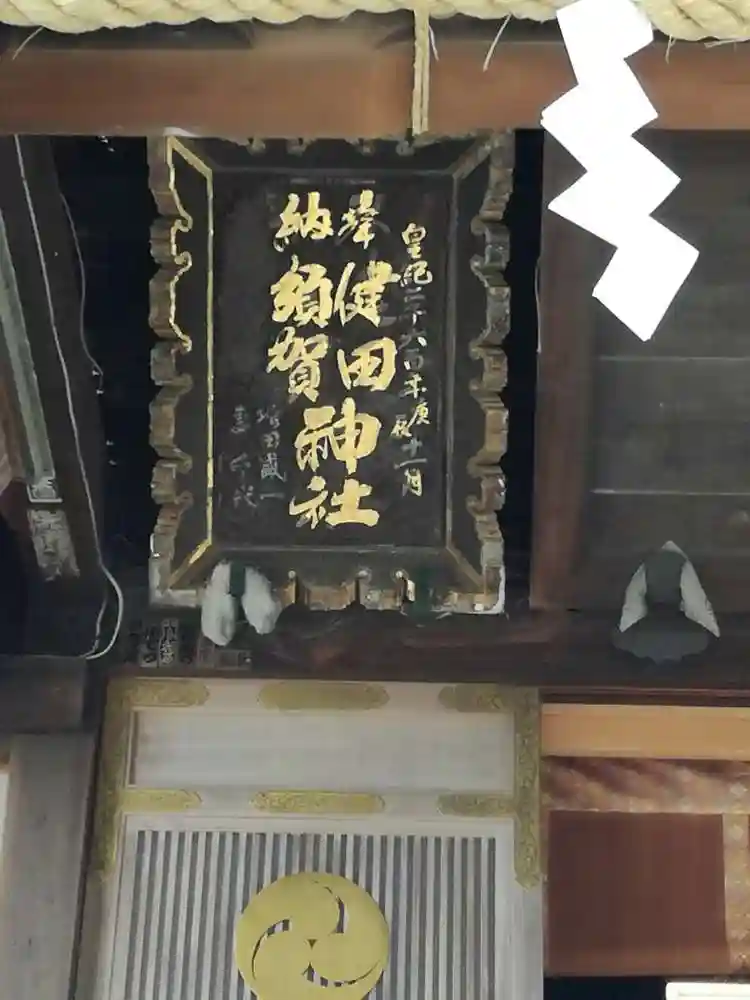 皇紀二千六百年庚辰十一月
奉納
健田
須賀
神社
増田盛一